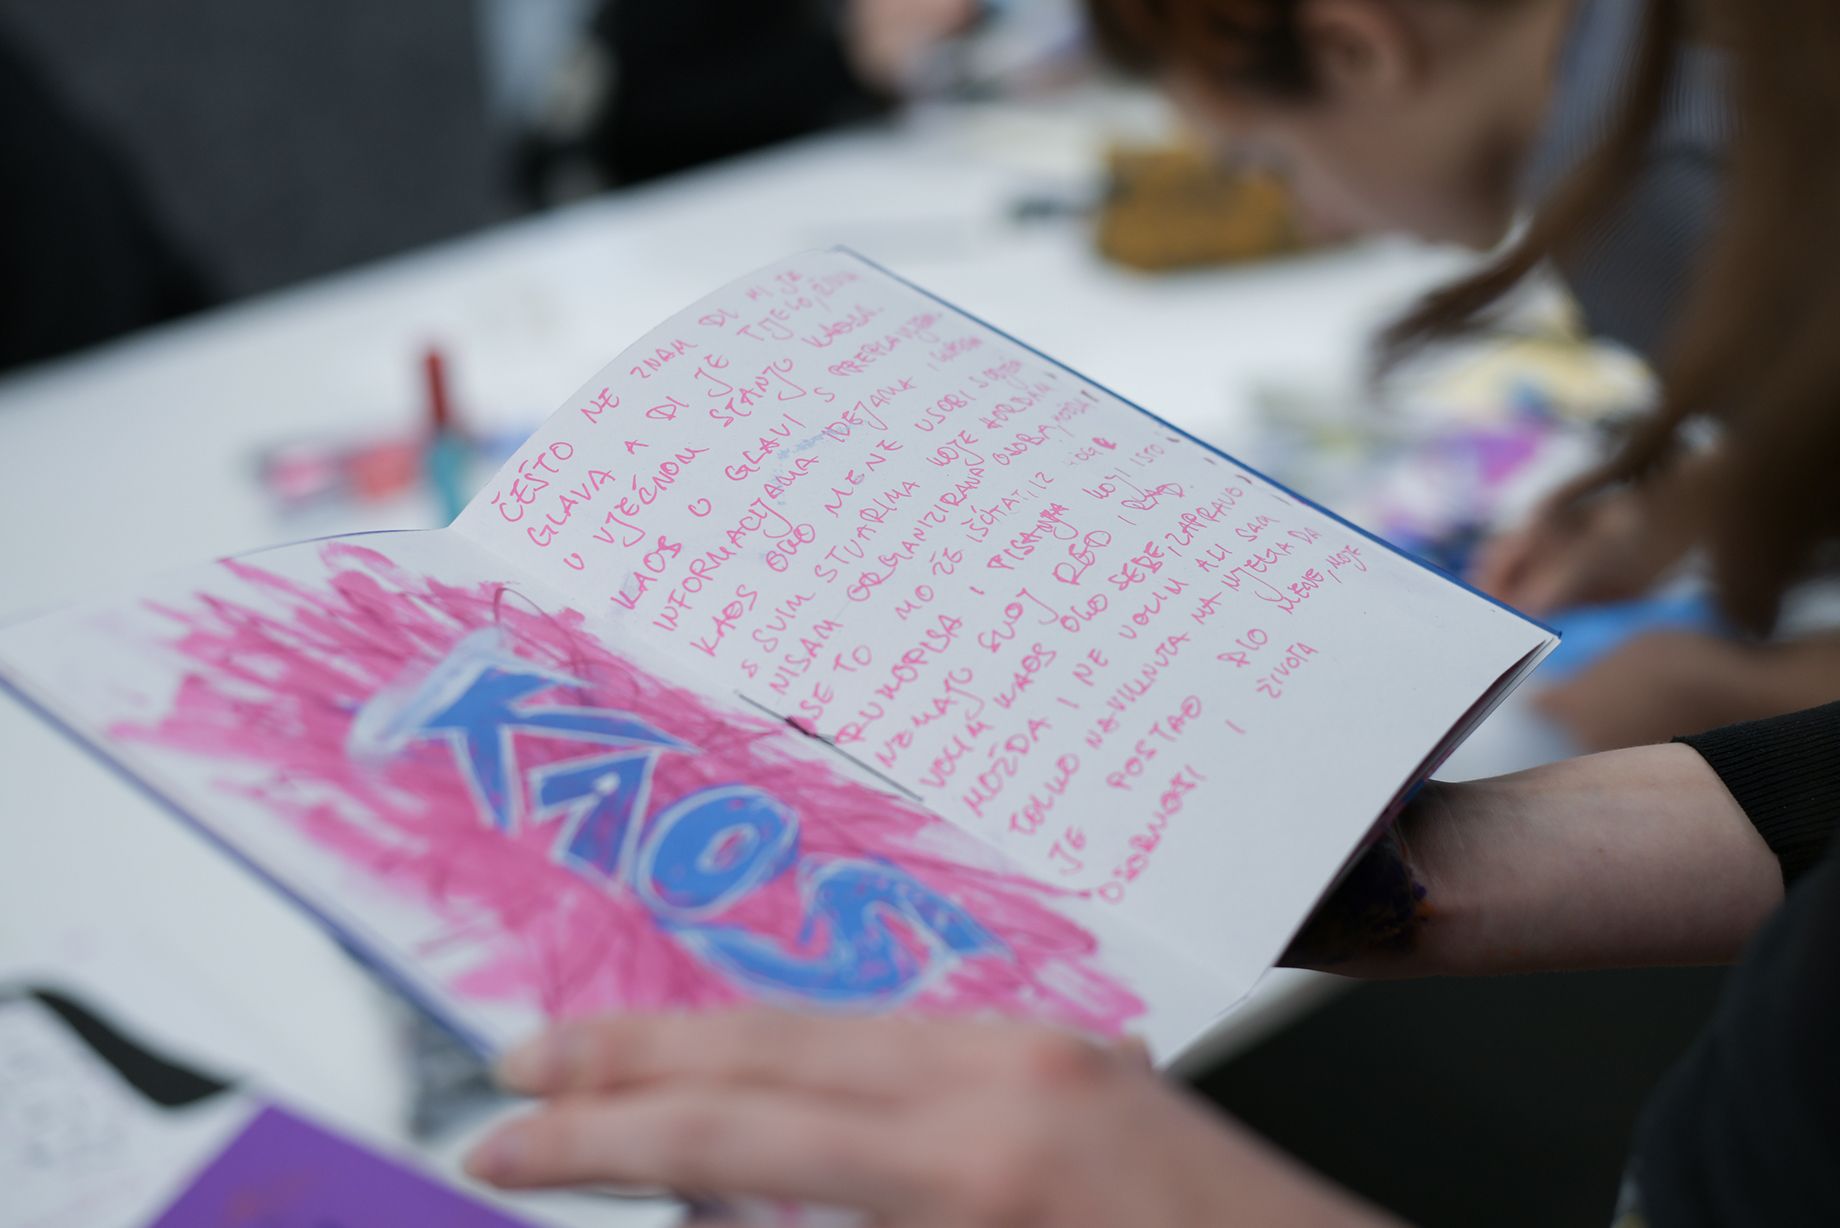 KAOS
ČESTO NE ZNAM DI MI JE
GLAVA A DI JE TIJELO, ŽIVIM
U VJEČNOM STANJU KAOSA.
KAOS U GLAVI S PREPLAVLJENIM
INFORMACIJAMA IDEJAMA,
KAOS OKO MENE U SOBI S
S SVIM STVARIMA KOJE
NISAM ORGANIZIRANA OSOBA,
SE TO MOŽE IŠČITATI IZ MOG
RUKOPISA I PISANJA KOJI ISTO
NEMAJU SVOJ RED I RAD.
VOLIM KAOS OKO SEBE, ZAPRAVO
MOŽDA I NE VOLIM ALI SAM
TOLKO NAVIKNUTA NA NJEGA DA
JE POSTAO DIO MENE, MOJE
OSOBNOSTI I ŽIVOTA